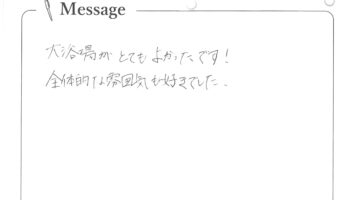 Message
大浴場がとてもよかったです!
全体的な雰囲気も好きでした.